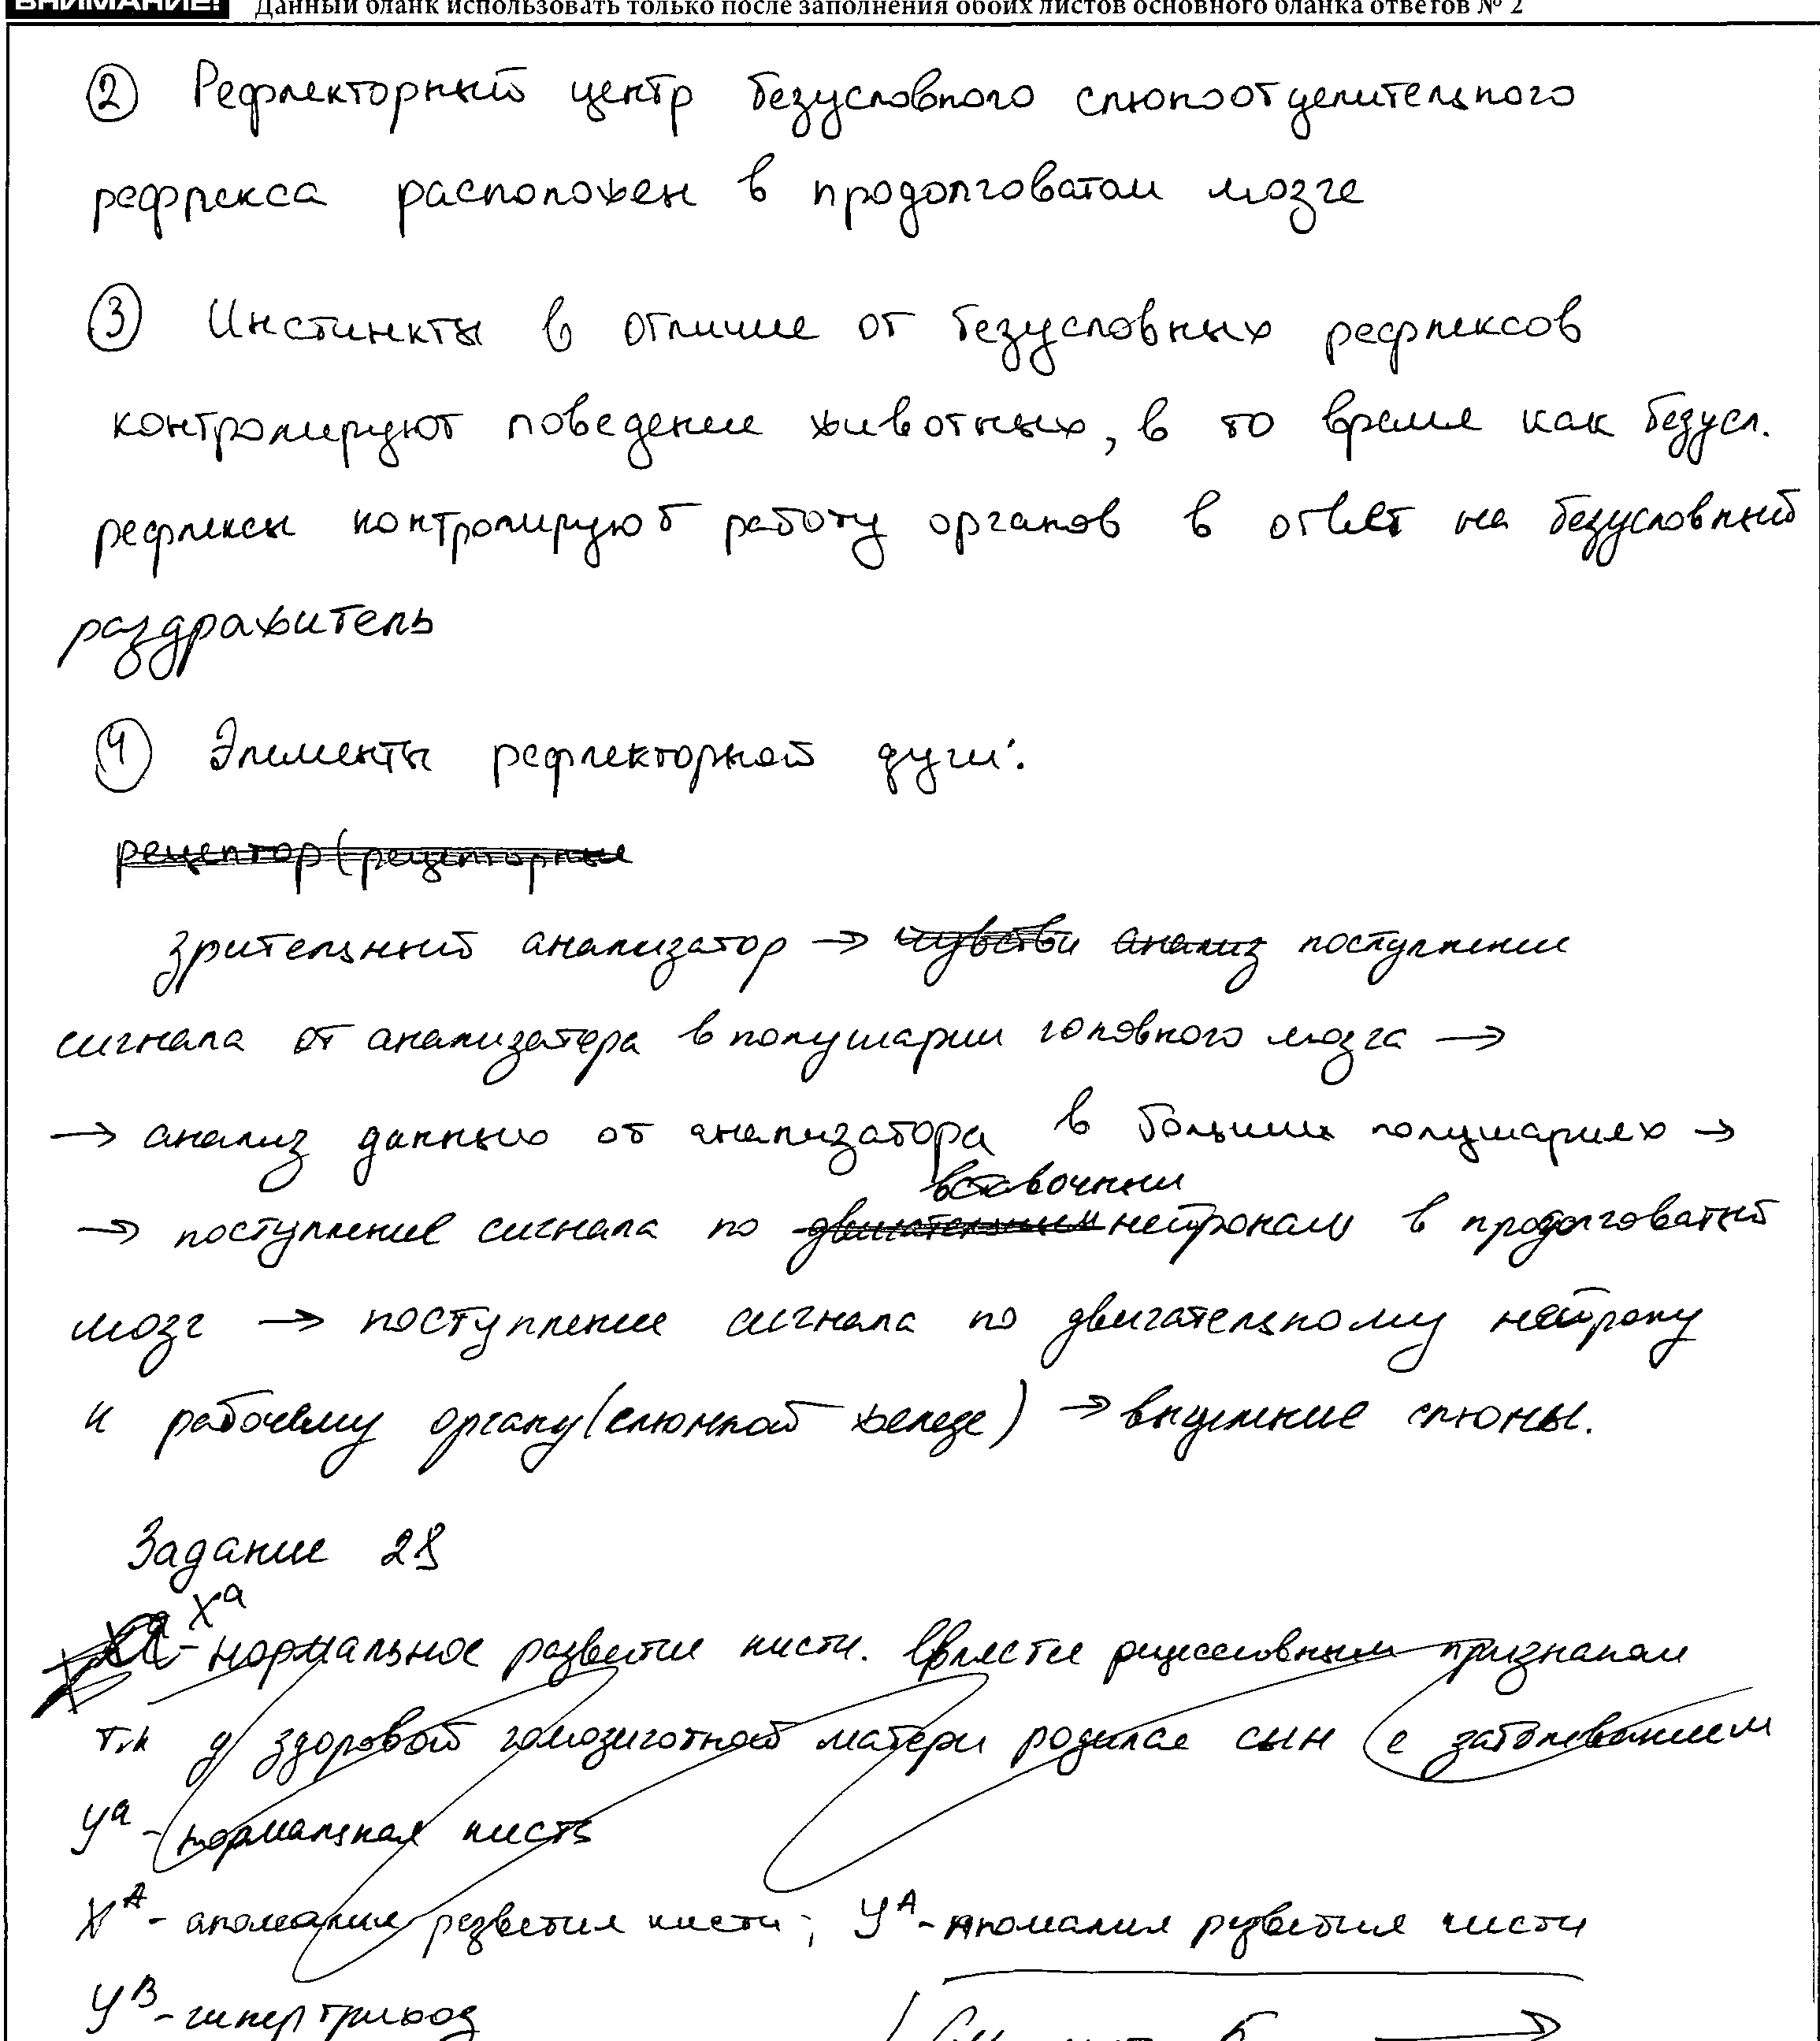 ВНИМАНИЕ! Данный бланк использовать только после заполнения обоих листов основного бланка ответов № 2
② Рефлекторный центр безусловного слюноотделительного
рефлекса расположен в продолговатом мозге
③ Инстинкты в отличие от безусловных рефлексов
контролируют поведение животных, в то время как безусл.
рефлексы контролируют работу органов в ответ на безусловный
раздражитель
④ Элементы рефлекторной дуги:
рецептор (рецепторные
зрительный анализатор → чувстви анализ поступление
сигнала от анализатора в полушарии головного мозга →
→ анализ данных от анализатора в больших полушариях →
вставочным
→ поступление сигнала по двигательным нейронам в продолговатый
мозг → поступление сигнала по двигательному нейрону
к рабочему органу (слюнной железе) → выделение слюны.
Задание 28
Xᵃ
- нормальное развитие кисти. является рецессивным признаком
т.к у здоровой гомозиготной матери родился сын с заболеванием
Yᵃ - нормальная кисть
Xᴬ - аномалия развития кисти; Yᴬ - аномалия развития кисти
Yᴮ - гипертрихоз